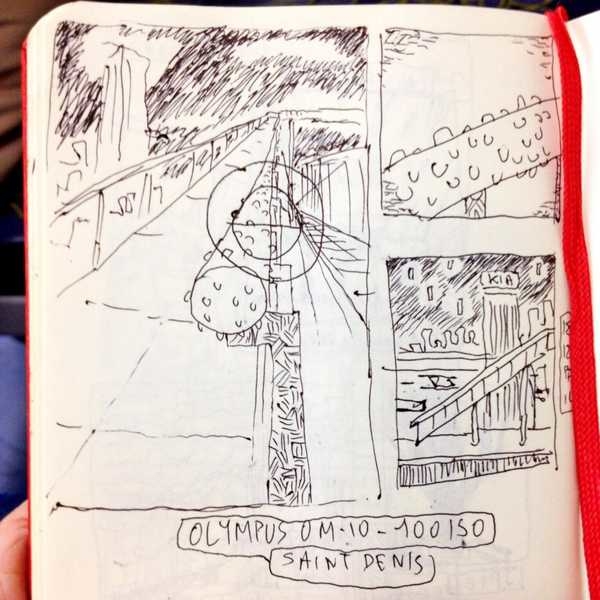 KIA
OLYMPUS OM-10-100ISO
SAINT DENIS